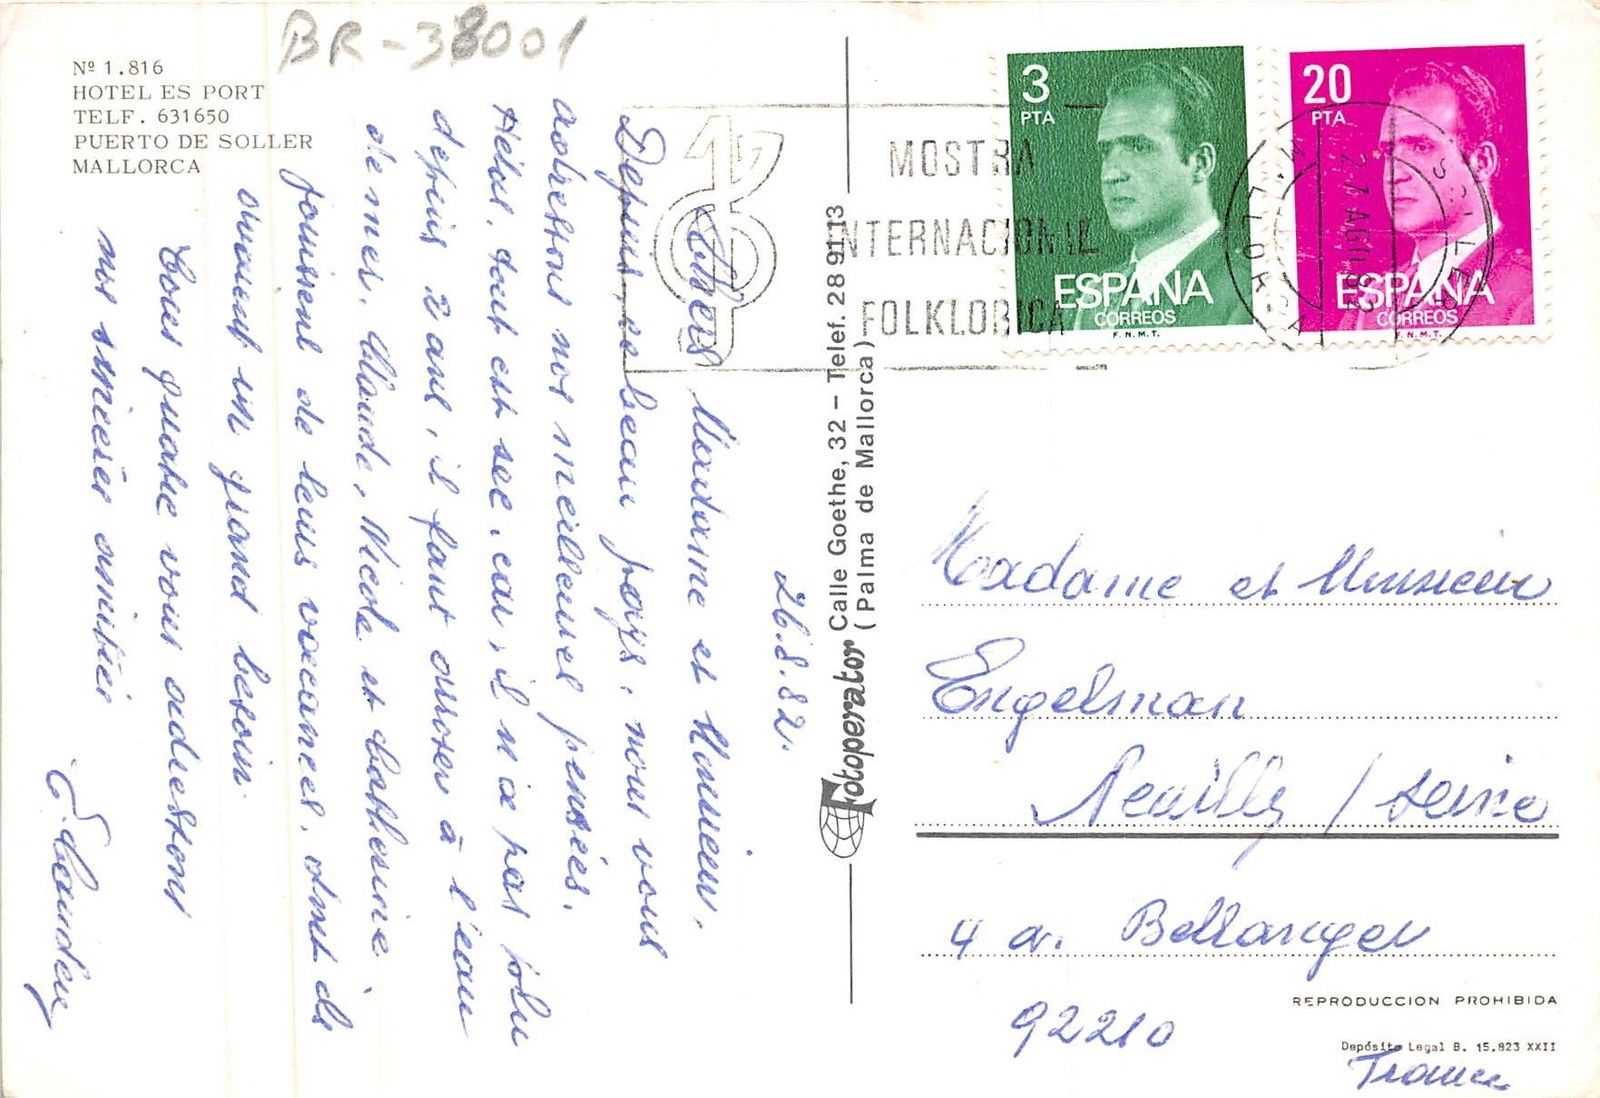 BR-38001
Nº 1.816
HOTEL ES PORT
TELF. 631650
PUERTO DE SOLLER
MALLORCA
26.8.82.
Chers Madame et Monsieur.
Depuis ce beau pays, nous vous
adressons nos meilleures pensées.
Hélas, tout est sec, car, il n'a pas plu
depuis 2 ans, il faut arroser à l'eau
de mer. Claude, Nicole et Catherine
jouissent de leurs vacances, dont ils
avaient un grand besoin.
Tous quatre vous adressons
nos sincères amitiés
Fotoperator
Calle Goethe, 32 – Telef. 28 91 13
( Palma de Mallorca )
MOSTRA
INTERNACIONAL
FOLKLORICA
3
PTA
ESPAÑA
CORREOS
F.N.M.T.
20
PTA
ESPAÑA
CORREOS
F.N.M.T.
SOLLER
27 AGO 82
MALLORCA
Madame et Monsieur
Engelman
Neuilly / Seine
4 av. Bellanger
92210
France
REPRODUCCION PROHIBIDA
Depósito Legal B. 15.823 XXII